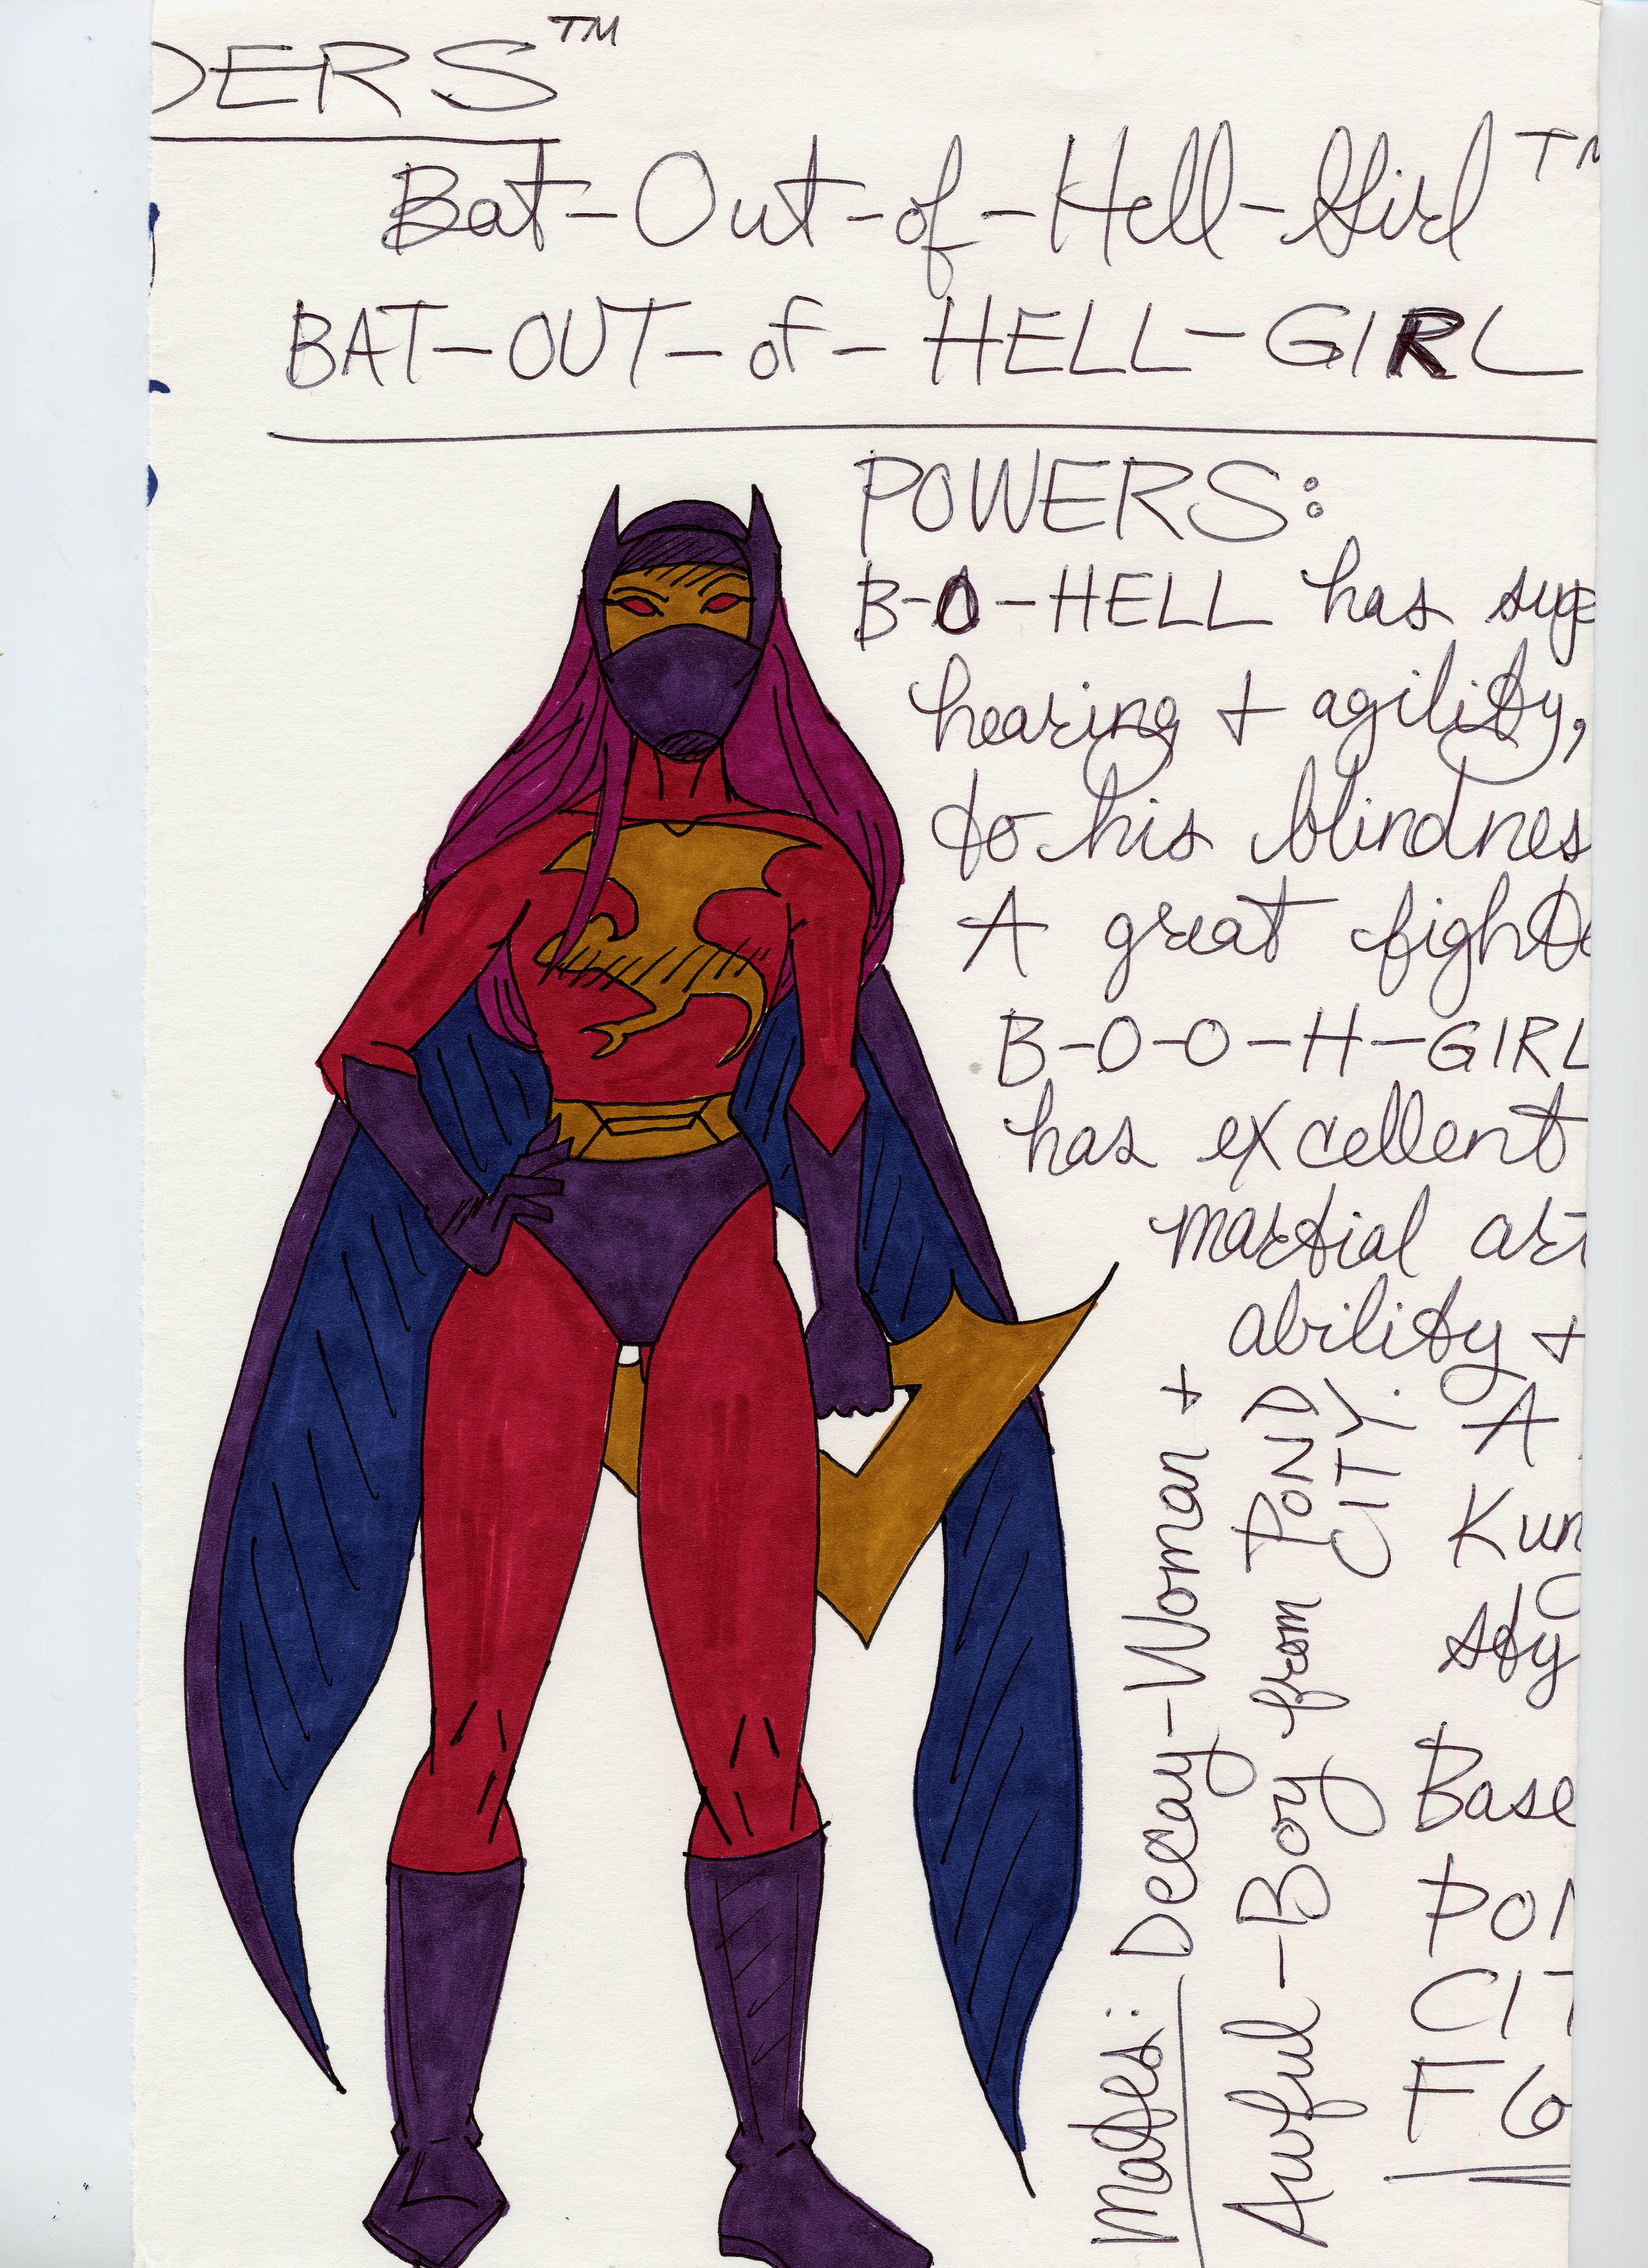 DERS™
Bat-Out-of-Hell-Girl TM
BAT-OUT-of-HELL-GIRL
POWERS:
B-O-HELL has sup
hearing + agility,
to his blindnes
A great fighte
B-O-O-H-GIRL
has excellent
martial art
ability +
A
Kun
sty
Base
PON
CIT
F6
mates: Decay-Woman +
Awful-Boy from POND
CITY.